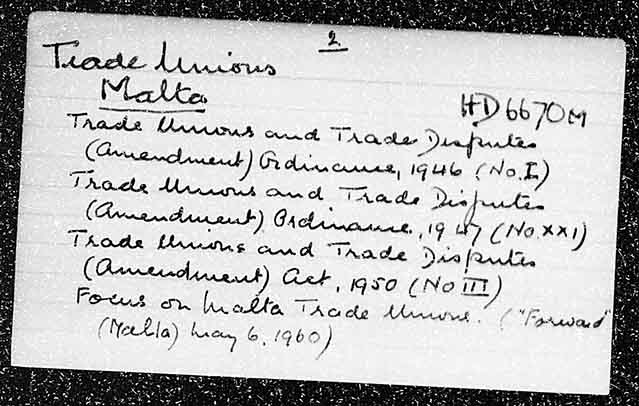 2
Trade Unions
Malta
HD6670M
Trade Unions and Trade Disputes
(Amendment) Ordinance, 1946 (No. I)
Trade Unions and Trade Disputes
(Amendment) Ordinance, 1947 (No. XXI)
Trade Unions and Trade Disputes
(Amendment) Act, 1950 (No III)
Focus on Malta Trade Unions. ("Forward"
(Malta) May 6, 1960)